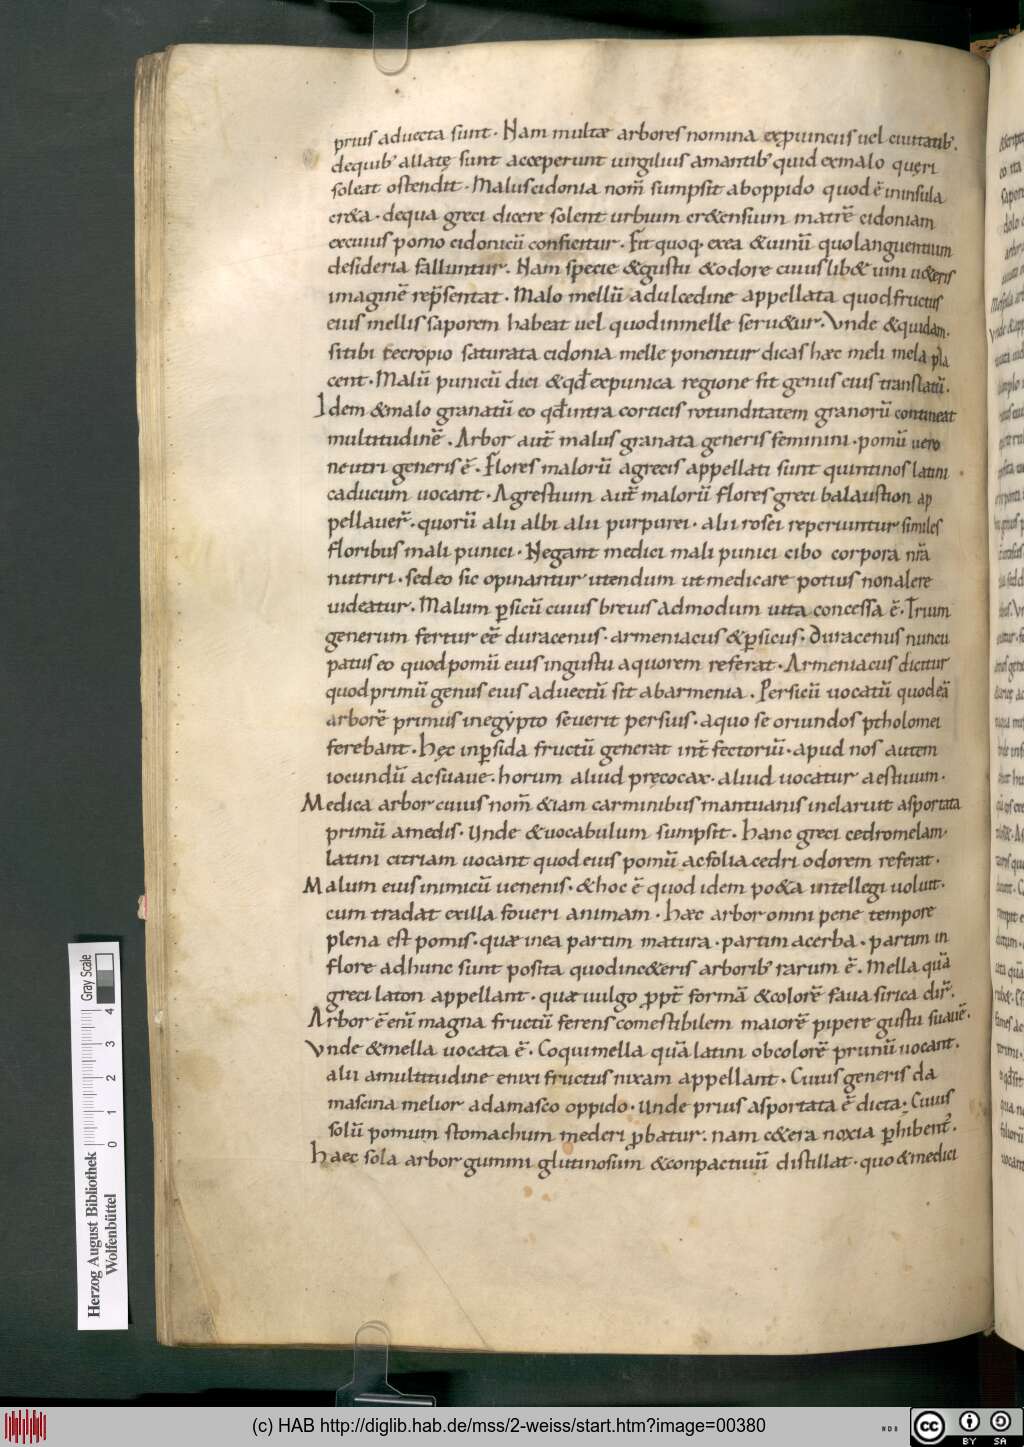 prius aduecta sunt. Nam multae arbores nomina ex ꝓuinciis uel ciuitatib;
de quib; allatę sunt acceperunt uirgilius amantib; quid ex malo quęri
soleat ostendit. Malus cidonia nom̄ sumpsit ab oppido quod ē in insula
cr&a. de qua greci dicere solent urbium cr&ensium matrē cidoniam
ex cuius pomo cidonicū conficitur. Fit quoq; ex ea & uinū quo languentium
desideria falluntur. Nam specie & gustu & odore cuiuslib& uini u&eris
imaginē rep̄sentat. Malo mellū a dulcedine appellata quod fructus
eius mellis saporem habeat uel quod in melle seru&ur. Vnde & quidam.
si tibi cecropio saturata cidonia melle ponentur dicas haec meli mela pla
cent. Malū punicū dici & qd̄ ex punica regione sit genus eius translatū.
Idem & malo granatū eo qd̄ intra corticis rotunditatem granorū contineat
multitudinē. Arbor aut̄ malus granata generis feminini. pomū uero
neutri generis ē. Flores malorū a grecis appellati sunt quintinos latini
caducum uocant. Agrestium aut̄ malorū flores greci balaustion ap
pellauer̄. quorū alii albi alii purpurei. alii rosei reperiuntur similes
floribus mali punici. Negant medici mali punici cibo corpora nr̄a
nutriri. sed eo sic opinantur utendum ut medicare potius non alere
uideatur. Malum ꝑsicū cuius breuis admodum uita concessa ē. Trium
generum fertur eē duracenus. armeniacus & ꝑsicus. Duracenus nuncu
patus eo quod pomū eius in gustu aquorem referat. Armeniacus dicitur
quod primū genus eius aduectū sit ab armenia. Persicū uocatū quod eā
arborē primus in egẏpto seuerit persius. a quo se oriundos ptholomei
ferebant. hęc in ꝑsida fructū generat int̄fectoriū. apud nos autem
iocundū ac suaue. horum aliud pręcocax. aliud uocatur aestiuum.
Medica arbor cuius nom̄ &iam carminibus mantuanis inclaruit asportata
primū a medis. Unde & uocabulum sumpsit. hanc greci cedromelam.
latini citriam uocant quod eius pomū ac folia cedri odorem referat.
Malum eius inimicū uenenis. & hoc ē quod idem po&a intellegi uoluit.
cum tradat ex illa foueri animam. haec arbor omni pene tempore
plena est pomis. quae in ea partim matura. partim acerba. partim in
flore adhunc sunt posita quod inc&eris arborib; rarum ē. Mella quā
greci laton appellant. quae uulgo ꝓpt̄ formā & colorē faua sirica dir̄.
Arbor ē eni magna fructū ferens comestibilem maiorē pipere gustu suauē.
Vnde & mella uocata ē. Coquimella quā latini ob colorē prunū uocant.
alii a multitudine enixi fructus nixam appellant. Cuius generis da
mascina melior a damasco oppido. Unde prius asportata ē dicta. Cuius
solū pomum stomachum mederi ꝓbatur. nam c&era noxia ꝑhibent̄.
Haec sola arbor gummi glutinosum & conpactiuū distillat. quo & medici
Herzog August Bibliothek
Wolfenbüttel
0 1 2 3 4
Gray Scale
(c) HAB http://diglib.hab.de/mss/2-weiss/start.htm?image=00380
cc BY SA